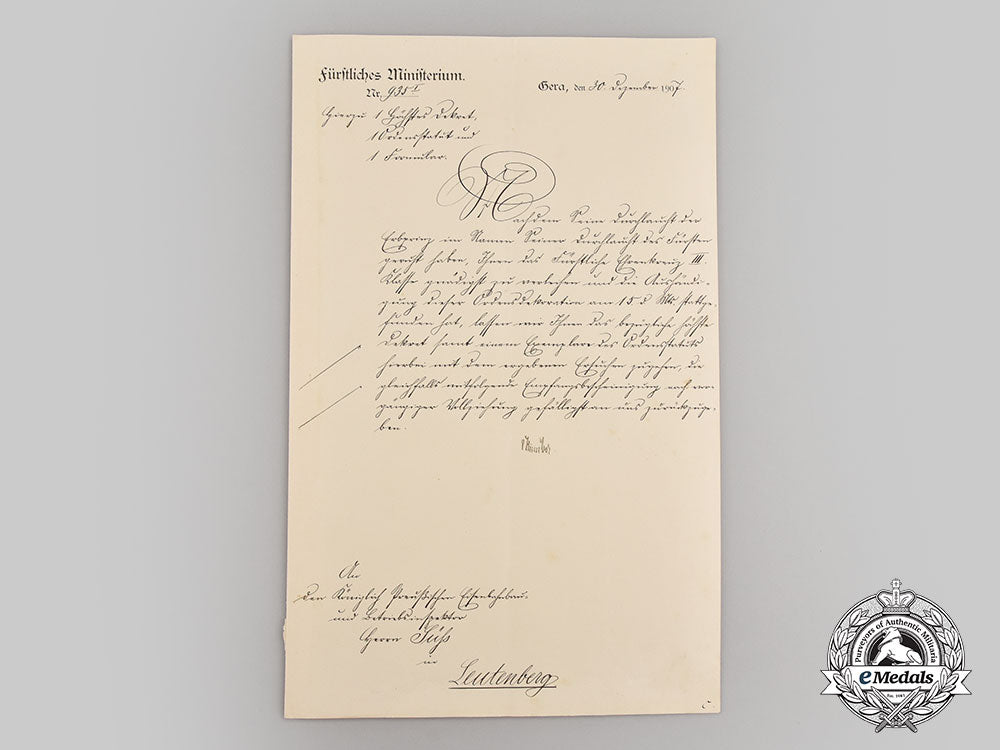 Fürstliches Ministerium.
Nr. 935 I
Gera, den 30. Dezember 1907.
Hierzu 1 Höchstes Dekret,
1 Ordensstatut und
1 Formular.
Nachdem Seine Durchlaucht der
Erbprinz im Namen Seiner Durchlaucht des Fürsten
geruht haben, Ihnen das Fürstliche Ehrenkreuz III.
Klasse gnädigst zu verleihen und die Aushändi-
gung dieser Ordensdekoration am 15. d. Mts. stattge-
funden hat, lassen wir Ihnen das bezügliche Höchste
Dekret samt einem Exemplare des Ordensstatuts
hierbei mit dem ergebenen Ersuchen zugehen, die
gleichfalls mitfolgende Empfangsbescheinigung nach vor-
gängiger Vollziehung gefälligst an uns zurückzuge-
ben.
An
den Königlich Preußischen Eisenbahnbau-
und Betriebsinspektor
Herrn Süß
in
Leutenberg
Purveyors of Authentic Militaria
eMedals